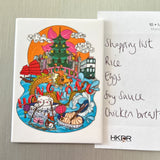 Shopping list
Rice
Eggs
Soy sauce
Chicken breast
HKBR